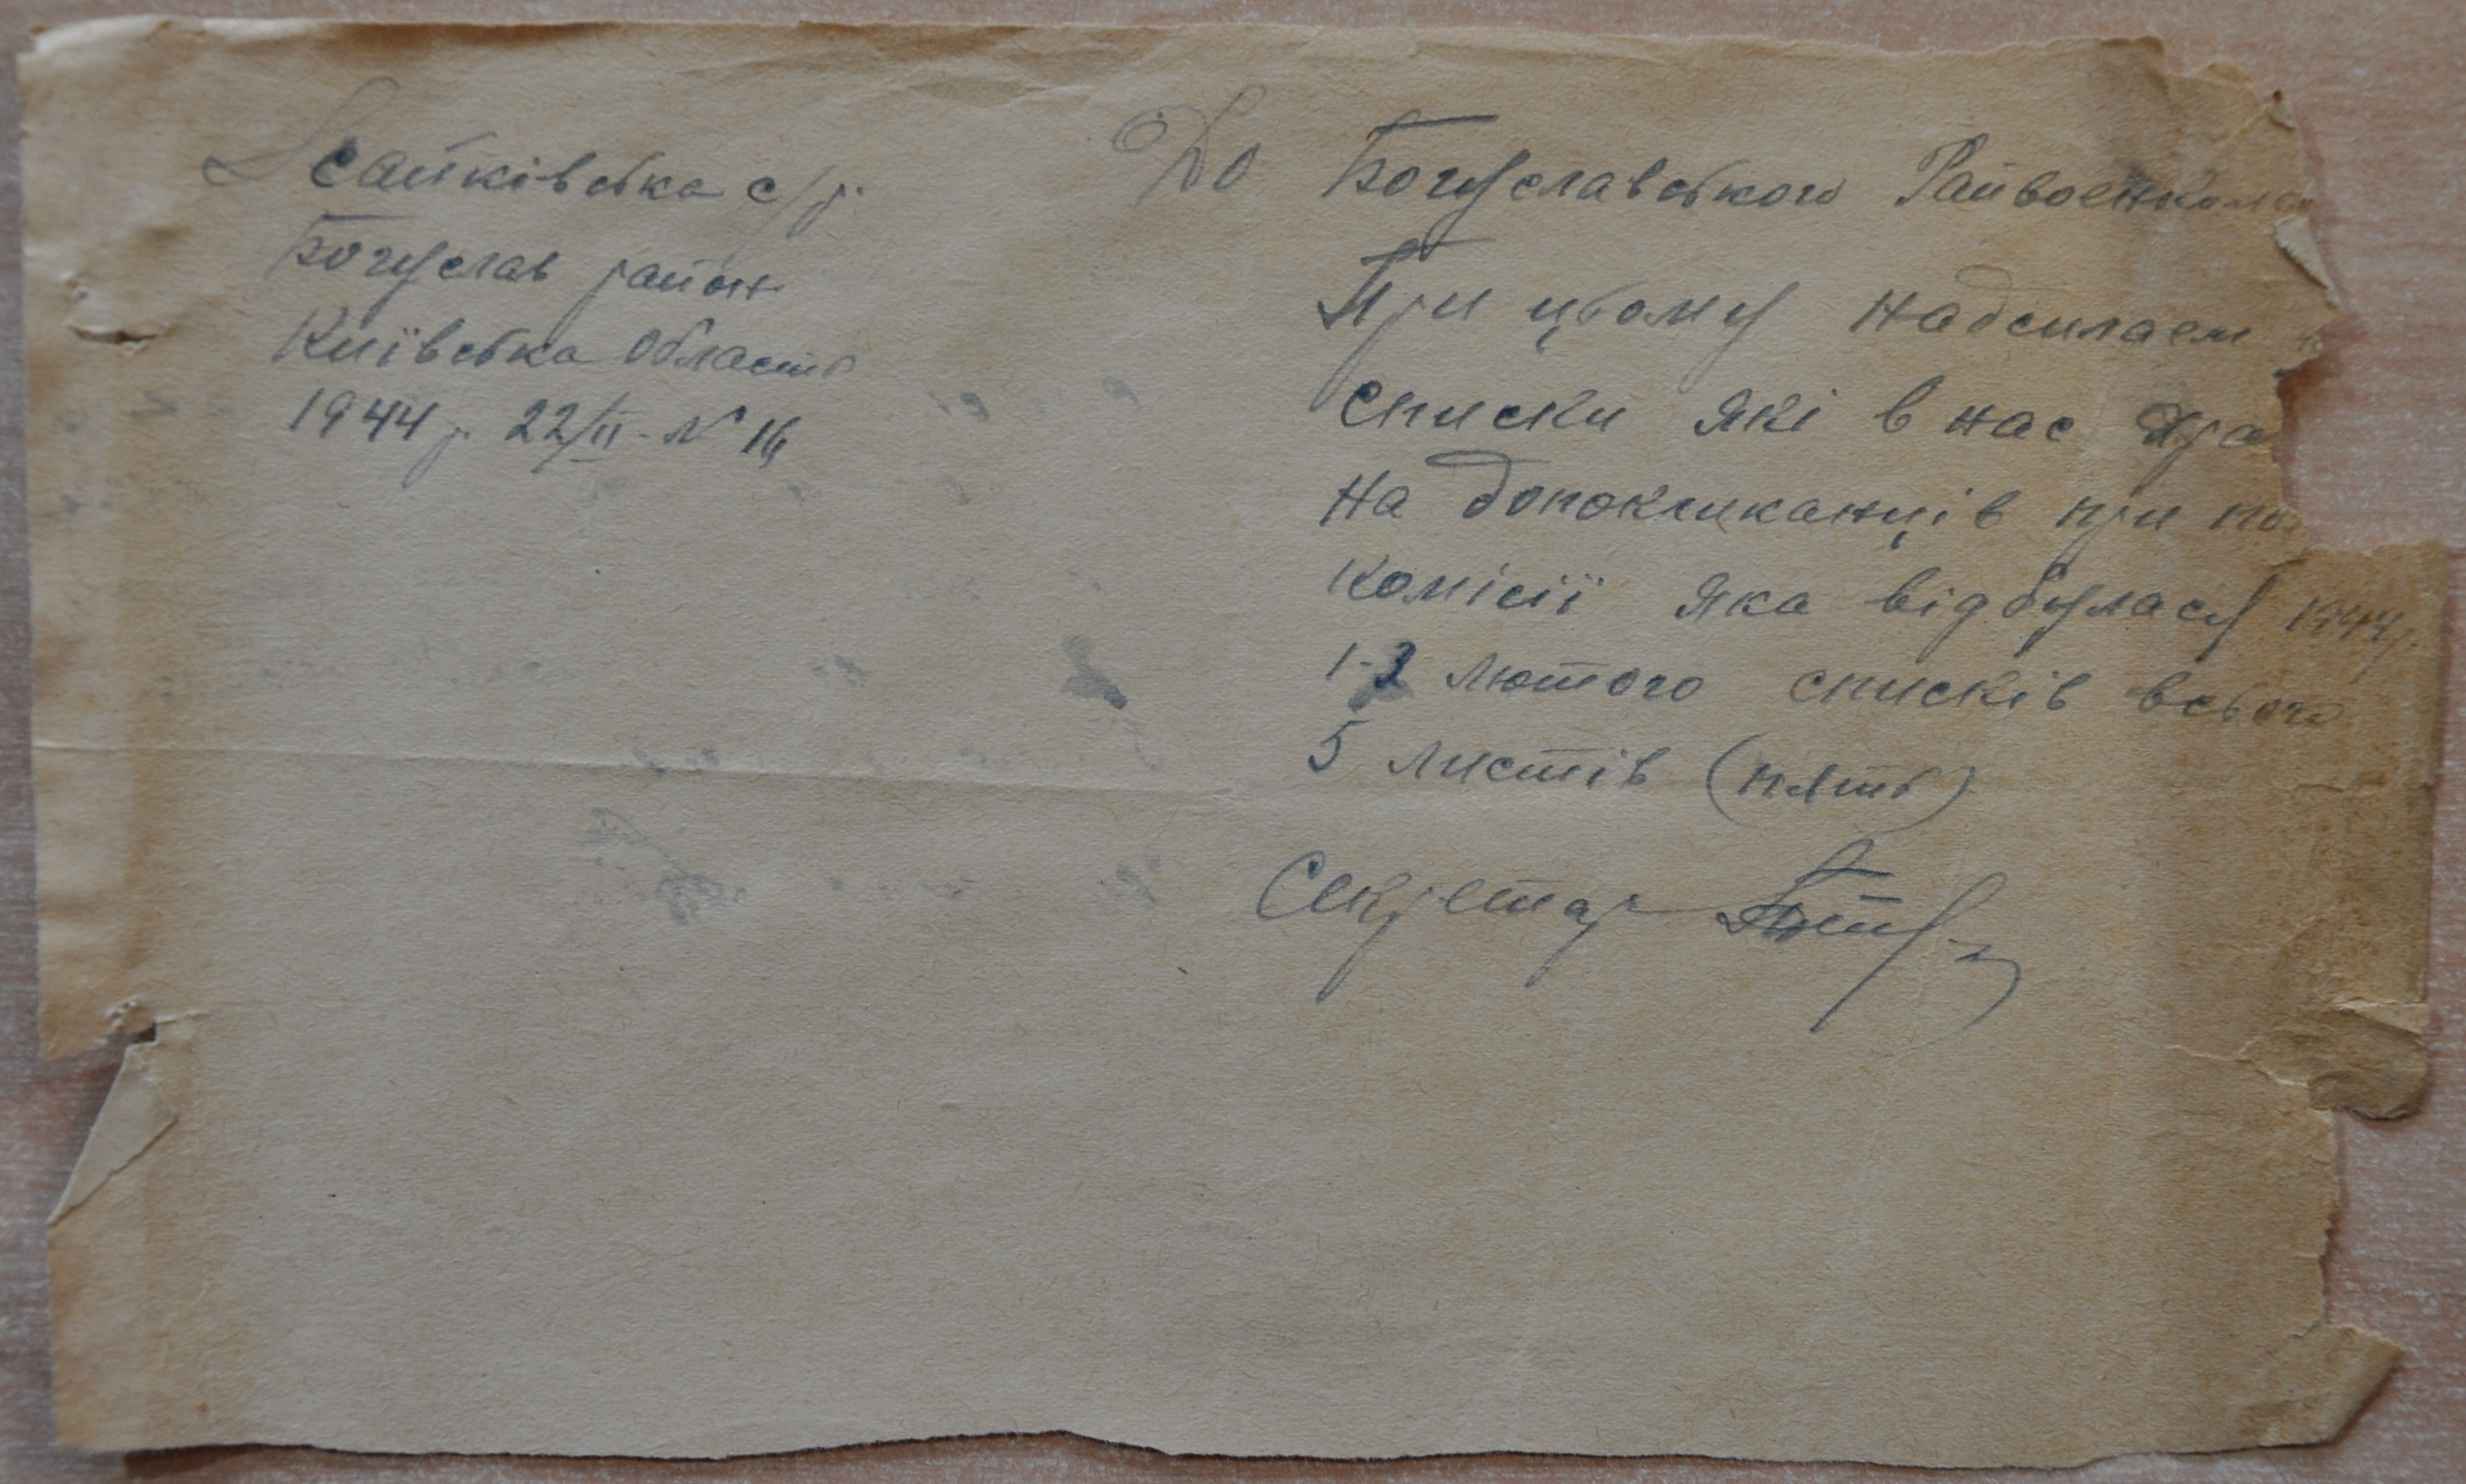 Ісайківська с/р.
Богуслав район
Київська область
1944 р. 22/II - № 16
До Богуславського Райвоєнкома
При цьому надсилаєм
списки які в нас
на допокликанців при
комісії яка відбулась 1944 р.
1-3 лютого списків всього
5 листів (пять)
Секретар